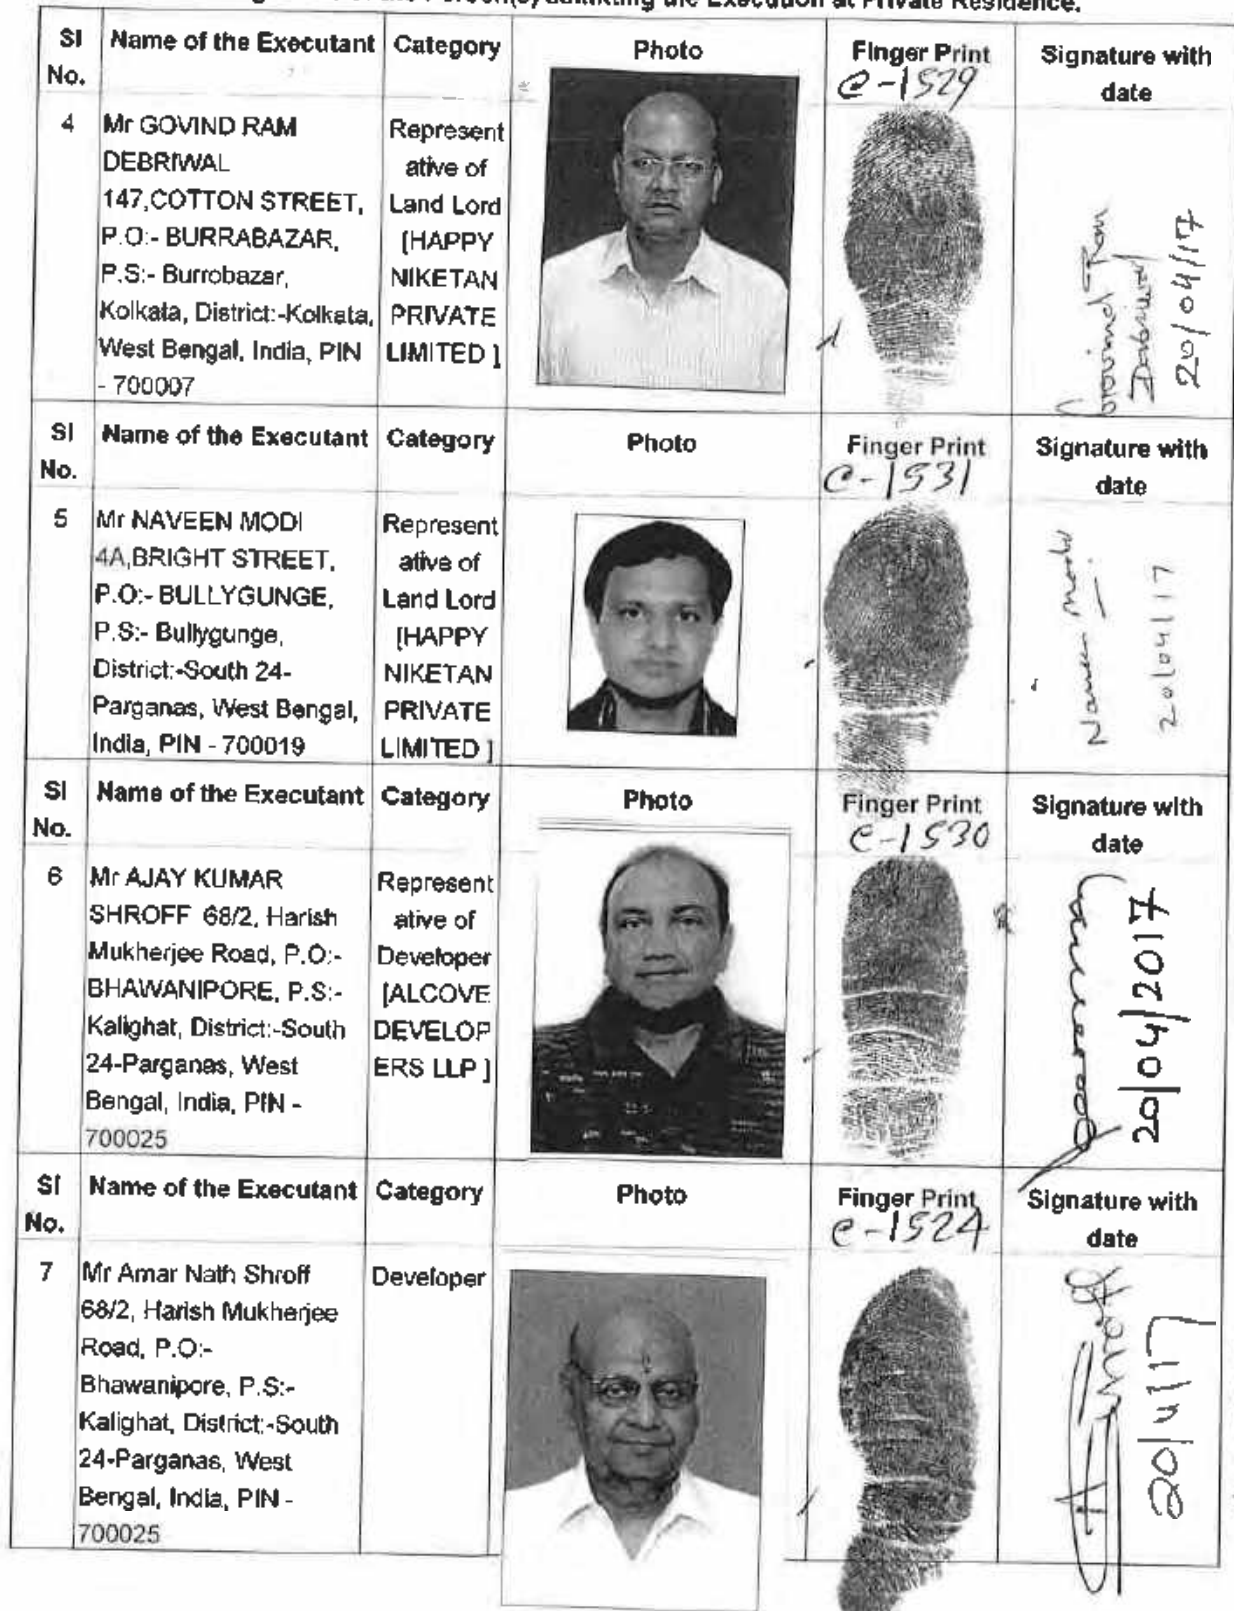 Person(s) admitting the Execution at Private Residence.
Sl No. Name of the Executant Category Photo Finger Print Signature with date
C-1529
4 Mr GOVIND RAM
DEBRIWAL
147,COTTON STREET,
P.O:- BURRABAZAR,
P.S:- Burrobazar,
Kolkata, District:-Kolkata,
West Bengal, India, PIN
- 700007
Represent
ative of
Land Lord
[HAPPY
NIKETAN
PRIVATE
LIMITED ]
Govind Ram
Debriwal
20/04/17
Sl No. Name of the Executant Category Photo Finger Print Signature with date
C-1531
5 Mr NAVEEN MODI
4A,BRIGHT STREET,
P.O:- BULLYGUNGE,
P.S:- Bullygunge,
District:-South 24-
Parganas, West Bengal,
India, PIN - 700019
Represent
ative of
Land Lord
[HAPPY
NIKETAN
PRIVATE
LIMITED ]
Naveen Modi
20/04/17
Sl No. Name of the Executant Category Photo Finger Print Signature with date
C-1530
6 Mr AJAY KUMAR
SHROFF 68/2, Harish
Mukherjee Road, P.O:-
BHAWANIPORE, P.S:-
Kalighat, District:-South
24-Parganas, West
Bengal, India, PIN -
700025
Represent
ative of
Developer
[ALCOVE
DEVELOP
ERS LLP ]
20/04/2017
Sl No. Name of the Executant Category Photo Finger Print Signature with date
C-1524
7 Mr Amar Nath Shroff
68/2, Harish Mukherjee
Road, P.O:-
Bhawanipore, P.S:-
Kalighat, District:-South
24-Parganas, West
Bengal, India, PIN -
700025
Developer
A Shroff
20/4/17